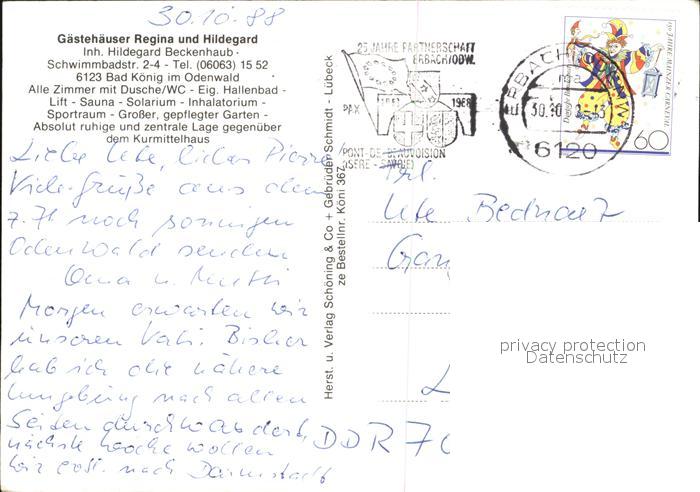 30.10.88
Gästehäuser Regina und Hildegard
Inh. Hildegard Beckenhaub ·
Schwimmbadstr. 2-4 - Tel. (06063) 15 52
6123 Bad König im Odenwald
Alle Zimmer mit Dusche/WC - Eig. Hallenbad -
Lift - Sauna - Solarium - Inhalatorium -
Sportraum - Großer, gepflegter Garten -
Absolut ruhige und zentrale Lage gegenüber
dem Kurmittelhaus
Liebe Ute, lieber Pierre
Viele Grüße aus dem
z. Zt noch sonnigen
Odenwald senden
Oma u. Mutti
Morgen erwarten wir
unseren Vati. Bisher
hab ich die nähere
Umgebung nach allen
Seiten durchwandert,
nächste Woche wollen
wir evtl. nach Darmstadt
Herst. u. Verlag Schöning & Co + Gebrüder Schmidt - Lübeck
ze Bestellnr. Köni 367
25 JAHRE PARTNERSCHAFT
ERBACH/ODW.
PAX
1988
PONT-DE-BEAUVOISIN
(ISERE - SAVOIE)
ERBACH
ma
30.10
6120
60
Frl.
Ute Bednarz
L
DDR 70
privacy protection
Datenschutz